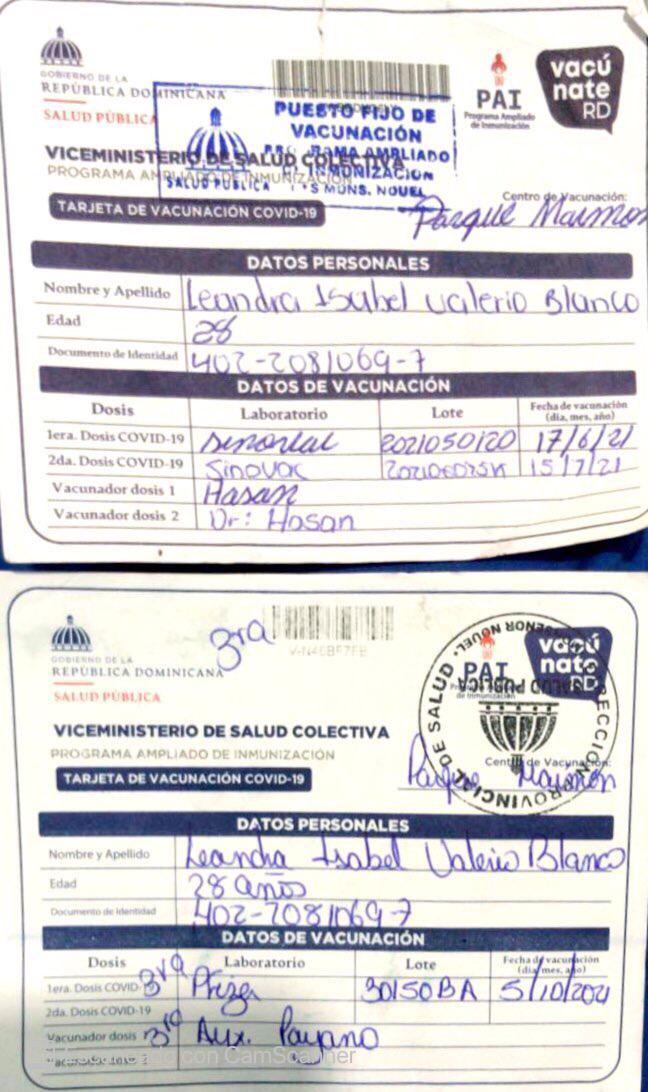 GOBIERNO DE LA
REPÚBLICA DOMINICANA
SALUD PÚBLICA
PAI
Programa Ampliado
de Inmunización
vacú
nate
RD
PUESTO FIJO DE
VACUNACIÓN
AMPLIADO
INMUNIZACION
SALUD PUBLICA
MONS. NOUEL
VICEMINISTERIO DE SALUD COLECTIVA
PROGRAMA AMPLIADO DE INMUNIZACIÓN
TARJETA DE VACUNACIÓN COVID-19
Centro de Vacunación:
Parque Maimon
DATOS PERSONALES
Nombre y Apellido Leandra Isabel Valerio Blanco
Edad 28
Documento de Identidad 402-2081069-7
DATOS DE VACUNACIÓN
Dosis Laboratorio Lote Fecha de vacunación
(día, mes, año)
1era. Dosis COVID-19 2021050120 17/6/21
2da. Dosis COVID-19 Sinovac 15/7/21
Vacunador dosis 1 Hasan
Vacunador dosis 2 Dr: Hasan
GOBIERNO DE LA
REPÚBLICA DOMINICANA
SALUD PÚBLICA
3ra
PAI
Programa Ampliado
de Inmunización
vacú
nate
RD
DIRECCION PROVINCIAL DE SALUD
MONSEÑOR NOUEL
SALUD PUBLICA
VICEMINISTERIO DE SALUD COLECTIVA
PROGRAMA AMPLIADO DE INMUNIZACIÓN
TARJETA DE VACUNACIÓN COVID-19
Centro de Vacunación:
Parque Maimon
DATOS PERSONALES
Nombre y Apellido Leandra Isabel Valerio Blanco
Edad 28 años
Documento de Identidad 402-2081069-7
DATOS DE VACUNACIÓN
Dosis Laboratorio Lote Fecha de vacunación
(día, mes, año)
1era. Dosis COVID-19 3ra Pfizer 30150BA 5/10/2021
2da. Dosis COVID-19
Vacunador dosis 3ra Aux. Payano
Vacunador dosis 2
con CamScanner